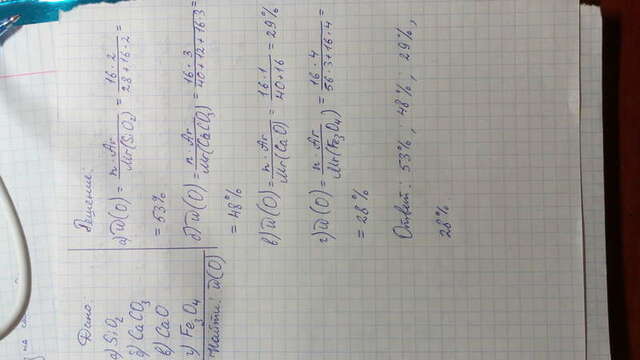 Дано:
а) SiO2
б) CaCO3
в) CaO
г) Fe3O4
Найти: ω(O)
Решение:
а) ω(O) = n · Ar / Mr(SiO2) = 16 · 2 / 28 + 16 · 2 =
= 53%
б) ω(O) = n · Ar / Mr(CaCO3) = 16 · 3 / 40 + 12 + 16 · 3 =
= 48%
в) ω(O) = n · Ar / Mr(CaO) = 16 · 1 / 40 + 16 = 29%
г) ω(O) = n · Ar / Mr(Fe3O4) = 16 · 4 / 56 · 3 + 16 · 4 =
= 28%
Ответ: 53%; 48%; 29%;
28%